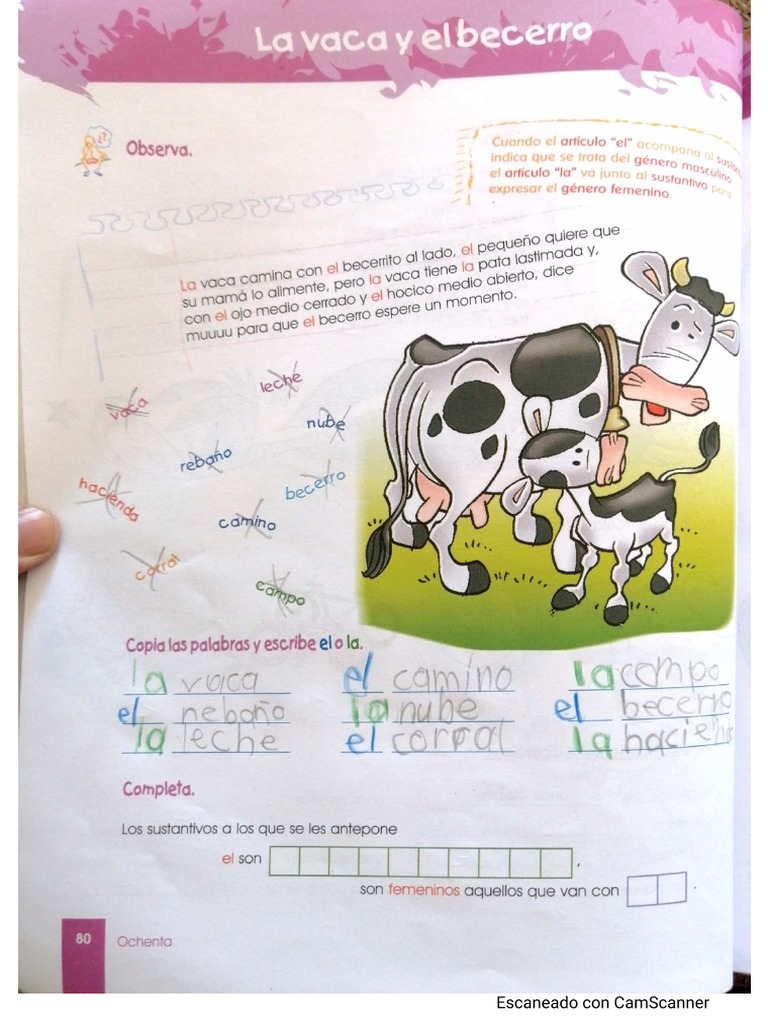 La vaca y el becerro
¿?
Observa.
Cuando el artículo "el" acompaña al
indica que se trata del género masculino,
el artículo "la" va junto al sustantivo para
expresar el género femenino.
La vaca camina con el becerrito al lado, el pequeño quiere que
su mamá lo alimente, pero la vaca tiene la pata lastimada y,
con el ojo medio cerrado y el hocico medio abierto, dice
muuuu para que el becerro espere un momento.
leche
vaca
nube
rebaño
hacienda
becerro
camino
corral
campo
Copia las palabras y escribe el o la.
la vaca el camino la compo
el nebaño la nube el becerro
la leche el corral la
Completa.
Los sustantivos a los que se les antepone
el son ,
son femeninos aquellos que van con .
80 Ochenta
Escaneado con CamScanner